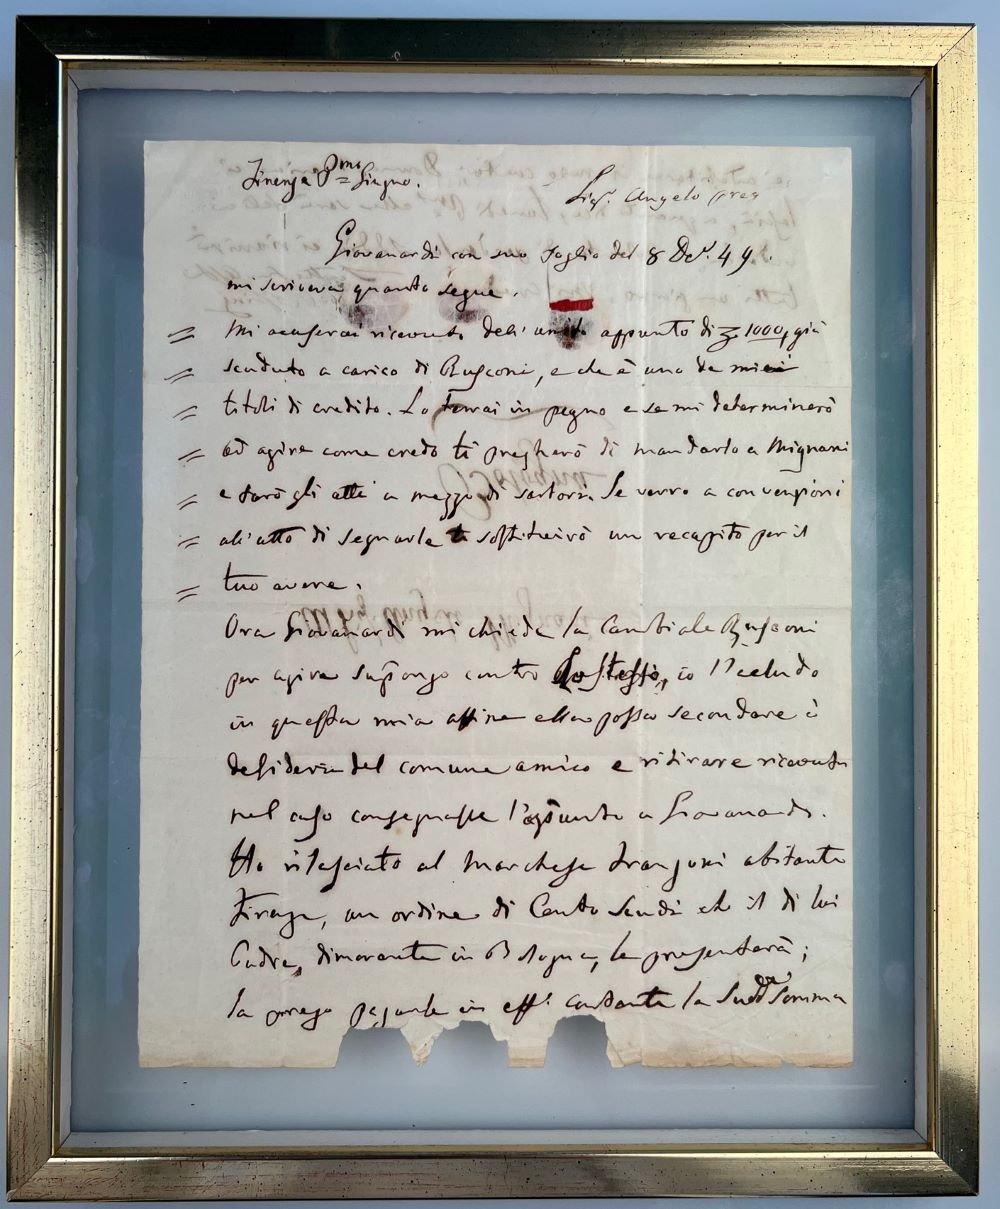 Firenze P.mo Giugno.
Sig.r Angelo
Giovanardi con suo foglio del 8 Dec.e 49.
mi scriveva quanto segue.
= Mi accuserai ricevuta dell'unito appunto di 1000, già
= scaduto a carico di Rusconi, e che è uno de miei
= titoli di credito. Lo terrai in pegno e se mi determinerò
= ad agire come credo ti pregherò di mandarlo a Mignani
= e farò gli atti a mezzo di Sartorn. Se verrò a convenzioni
= all'atto di segnarle ti sostituirò un recapito per il
= tuo avere.
Ora Giovanardi mi chiede la Cambiale Rusconi
per agire suppongo contro lo stesso, io l'acludo
in questa mia affine ella possa secondare i
desideri del comune amico e ritirare ricevuta
nel caso consegnasse l'appunto a Giovanardi.
Ho rilasciato al Marchese Frangoni abitante
Firenze, un ordine di Cento Scudi che il di lui
Padre, dimorante in Bologna, le presenterà;
la prego pagarle in eff.o contante la Sudd.a Somma